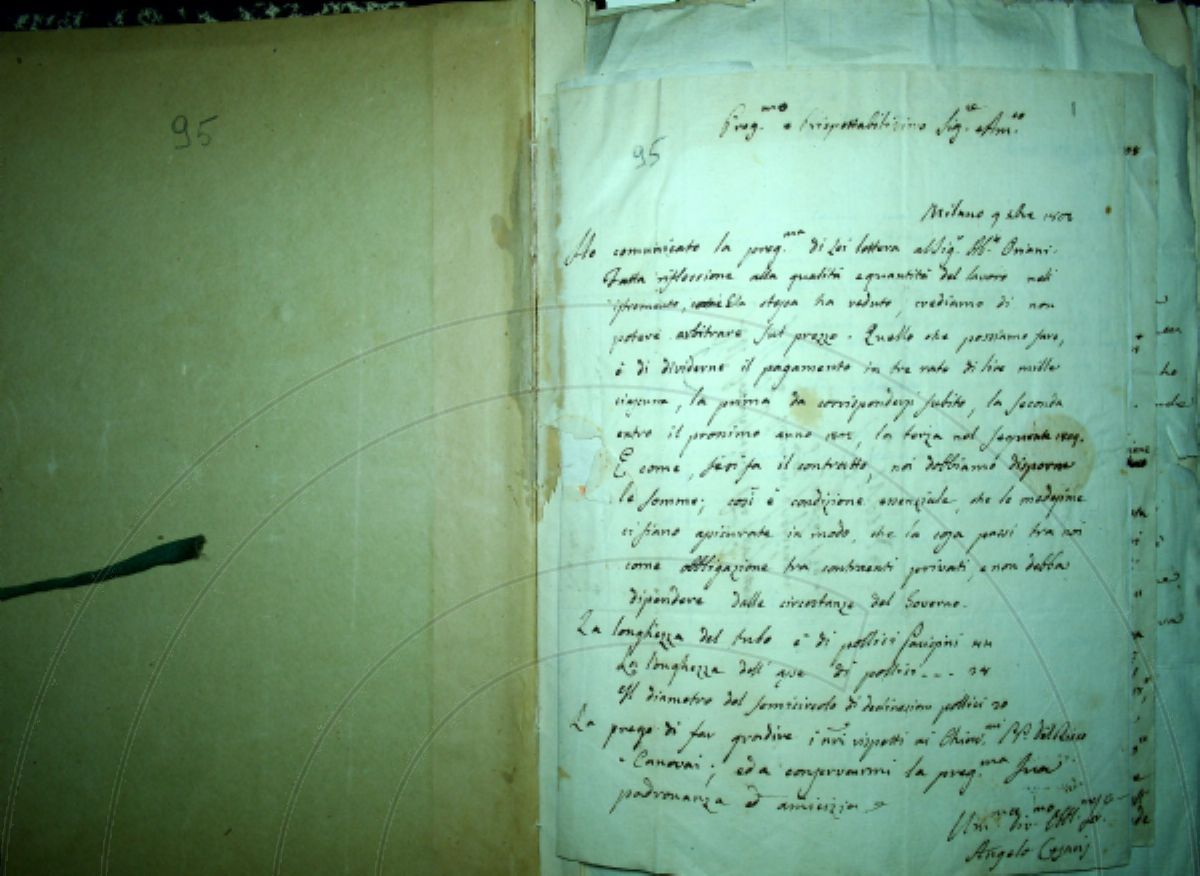 95
Preg.mo e Prispettabilisimo Sig.re e Am.co
95
Milano 9 xbre 1802
Ho comunicato la preg.ma di Lei lettera al Sig.r Ab.te Oriani.
Fatta riflessione alla qualità e quantità del lavoro nell'
istrumento, Ella stessa ha veduto, crediamo di non
potere arbitrare sul prezzo. Quello che possiamo fare,
è di dividerne il pagamento in tre rate di lire mille
ciascuna, la prima da corrispondersi subito, la seconda
entro il prossimo anno 1803, la terza nel seguente 1804.
E come, se si fa il contratto, noi dobbiamo disporne
le somme; così è condizione essenziale, che le medesime
ci siano assicurate in modo, che la cosa passi tra noi
come obbligazione tra contraenti privati, e non debba
dipendere dalle circostanze del Governo.
La longhezza del tubo è di pollici Parigini
La longhezza dell'asse di pollici - - -
Il diametro del semicircolo di declinazioni pollici 20
La prego di far gradire i nri rispetti ai Chiar.mi PP. Del Ricco
e Canovai; ed a conservarmi la preg.ma Sua
padronanza ed amicizia
Um.mo Div.mo Obb.mo Ser.
Angelo Cesaris